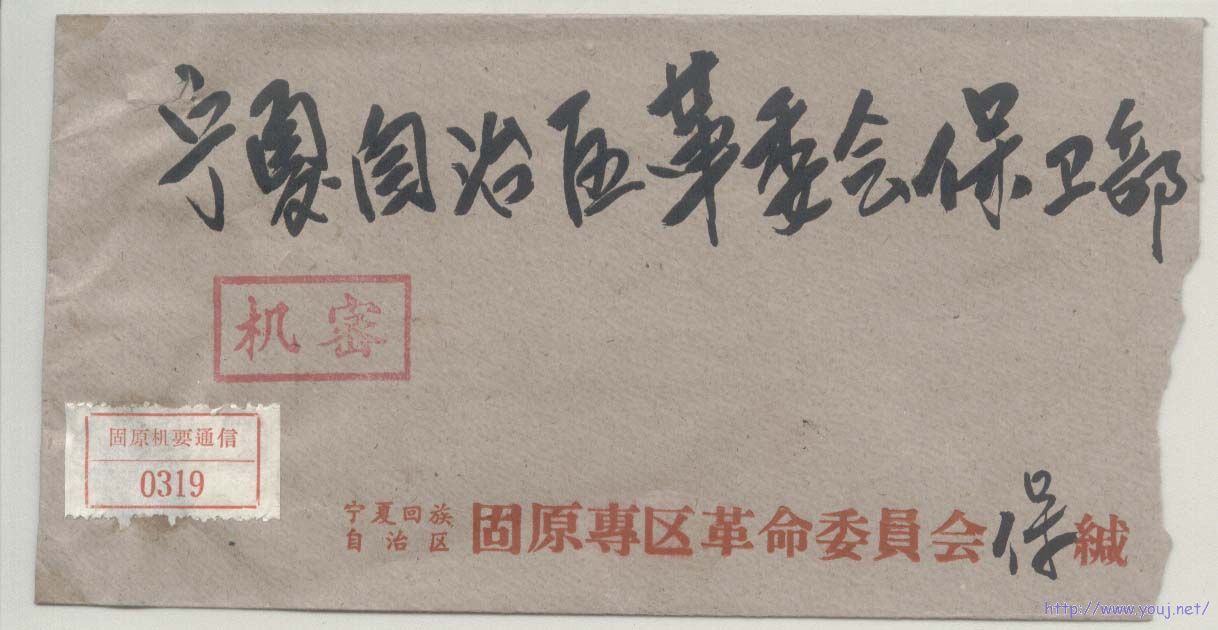 宁夏自治区革委会保卫部
机密
固原机要通信
0319
宁夏回族
自治区
固原專区革命委員会保缄
http://www.youj.net/